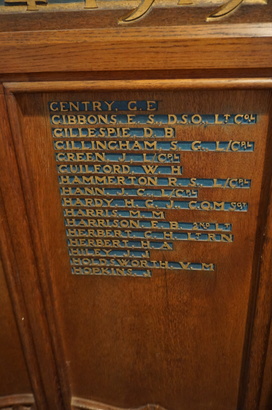 GENTRY. G. E
GIBBONS. E. S. D.S.O. LT COL
GILLESPIE. D. B
GILLINGHAM. S. G. L/CPL
GREEN. J. L/CPL
GUILFORD. W. H
HAMMERTON. R. S. L/CPL
HANN. J. C. L/CPL
HARDY. H. G. J. C.Q.M SGT
HARRIS. M. M
HARRISON. E. B. 2ND LT
HERBERT. C. H. LT R.N
HERBERT. H. A
HILEY. J. J
HOLDSWORTH. V. M
HOPKINS. J